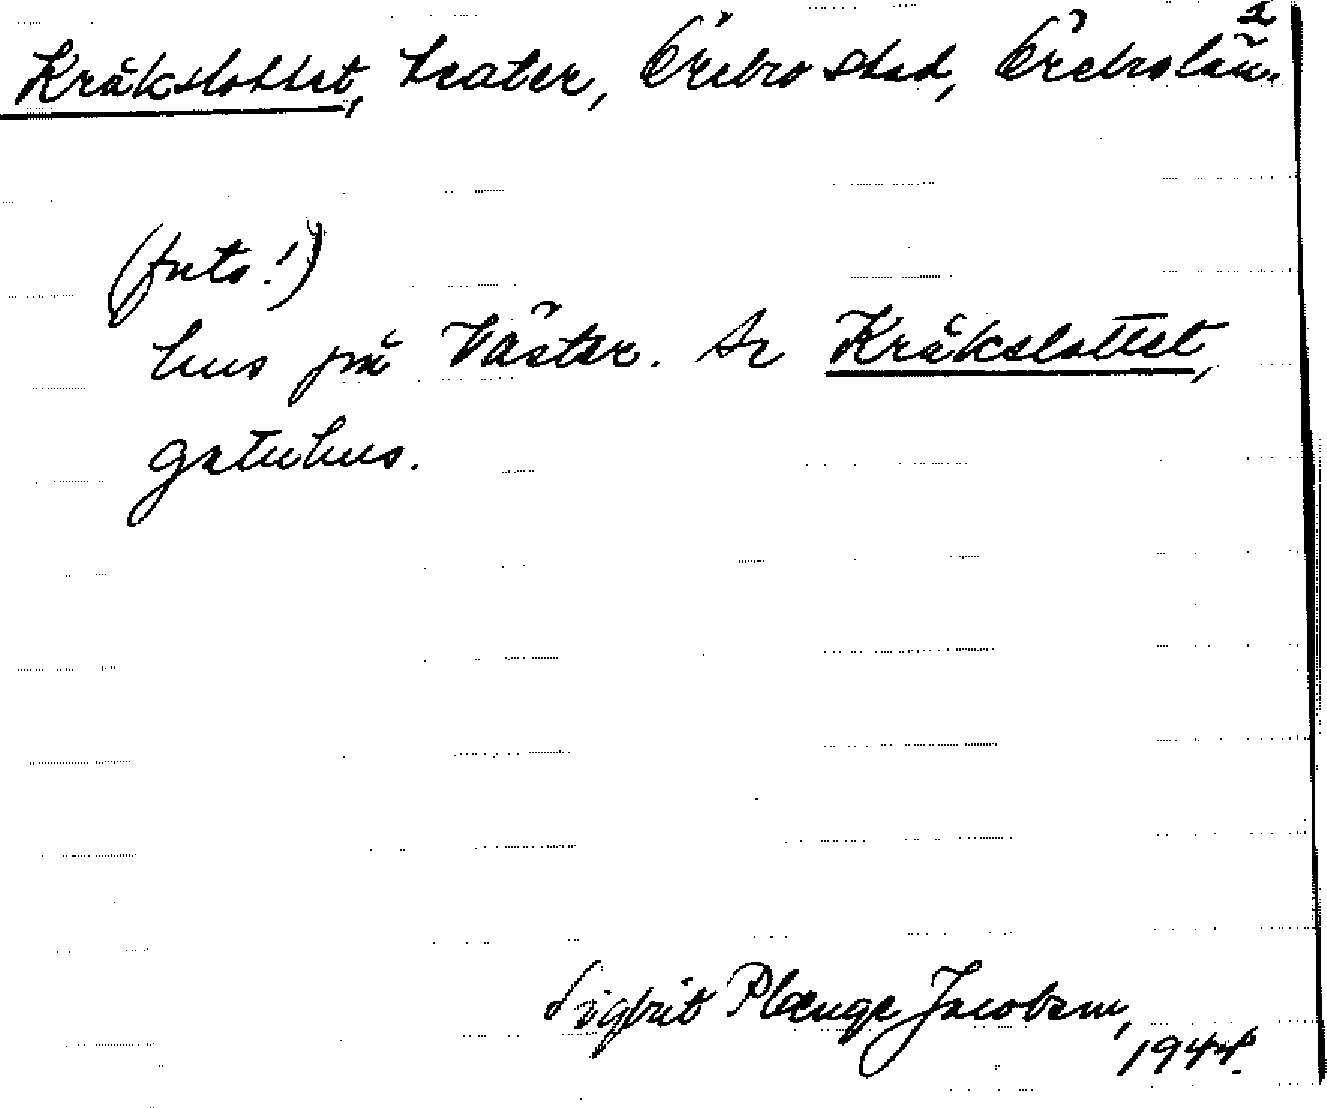 2
Kråkslottet, teater, Örebro stad, Örebro län.
(foto!)
hus på Väster. Se Kråkslottet,
gatuhus.
Sigbrit Plænge Jacobson,
1944.